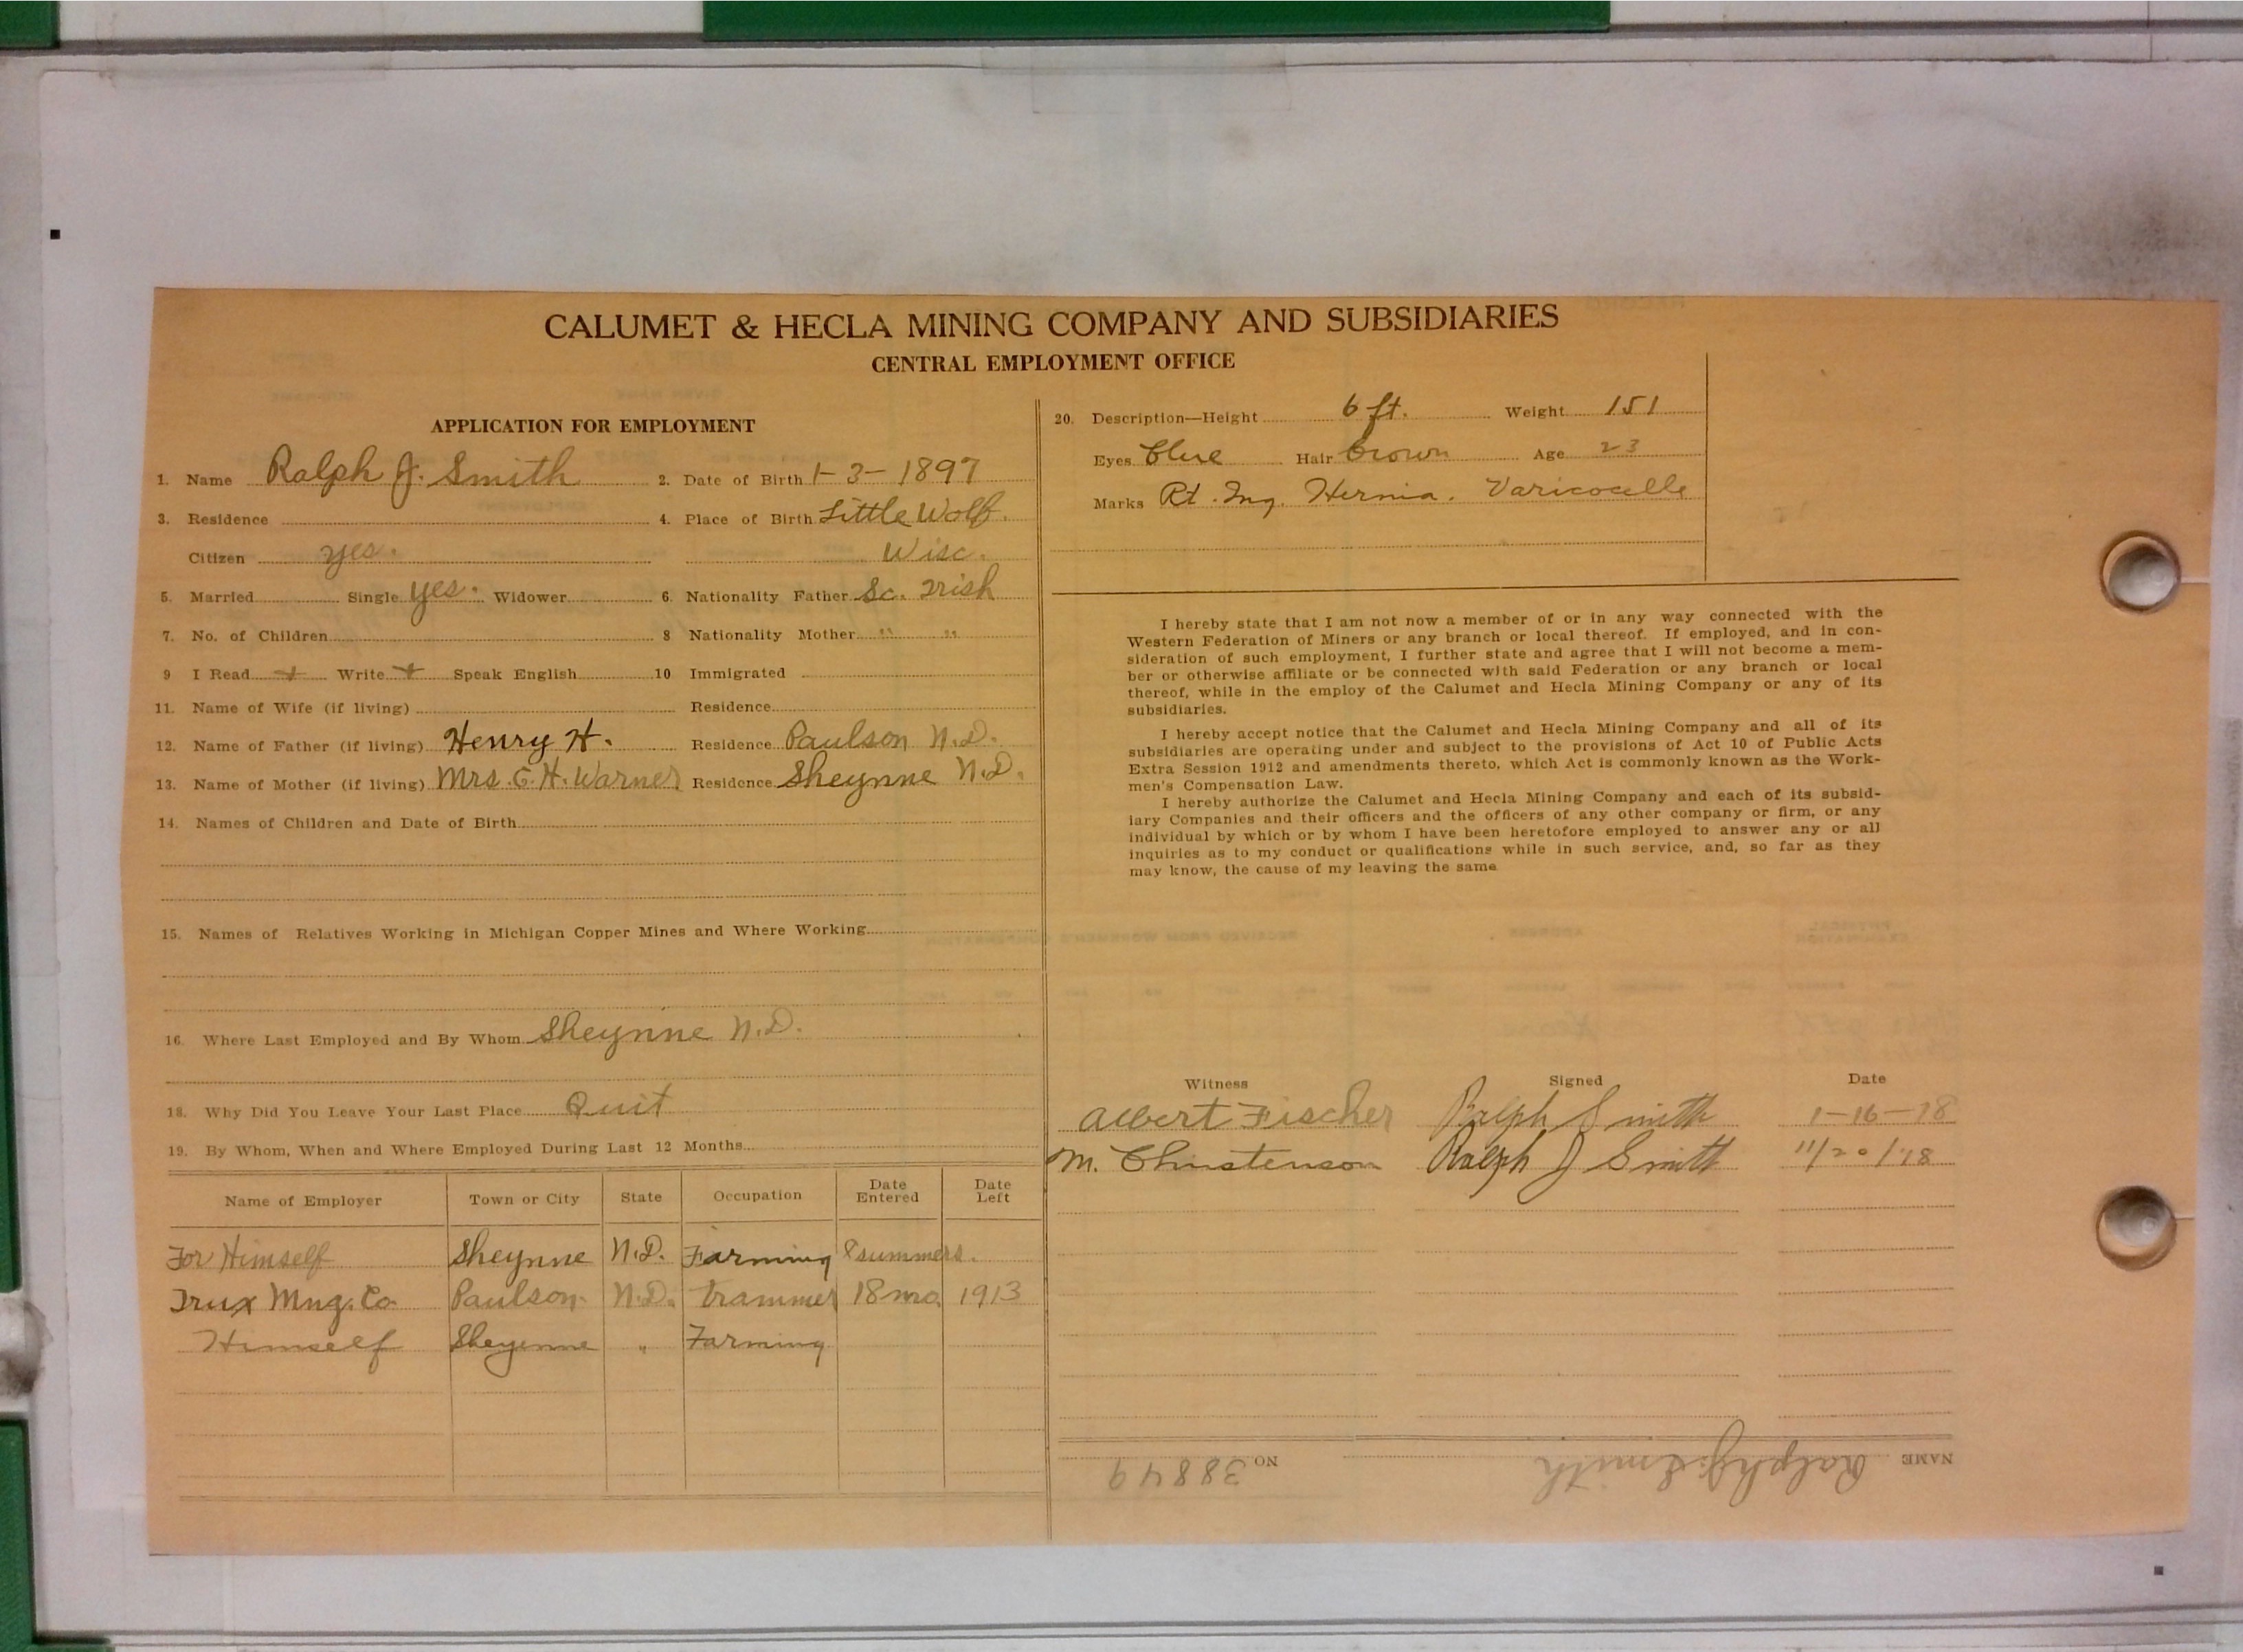 CALUMET & HECLA MINING COMPANY AND SUBSIDIARIES
CENTRAL EMPLOYMENT OFFICE
APPLICATION FOR EMPLOYMENT
1. Name Ralph J. Smith 2. Date of Birth 1-3-1897
3. Residence 4. Place of Birth Little Wolf.
Citizen yes. Wisc.
5. Married Single yes. Widower 6. Nationality Father Sc. Irish
7. No. of Children 8 Nationality Mother " "
9 I Read + Write + Speak English 10 Immigrated
11. Name of Wife (if living) Residence
12. Name of Father (if living) Henry H. Residence Paulson N.D.
13. Name of Mother (if living) Mrs. G. H. Warner Residence Sheynne N.D.
14. Names of Children and Date of Birth
15. Names of Relatives Working in Michigan Copper Mines and Where Working
16. Where Last Employed and By Whom Sheynne N.D.
18. Why Did You Leave Your Last Place Quit
19. By Whom, When and Where Employed During Last 12 Months
Name of Employer Town or City State Occupation Date Entered Date Left
For Himself Sheynne N.D. Farming 8 summers.
Trux Mng. Co Paulson N.D. trammer 18 mo. 1913
Himself Sheyenne " Farming
20. Description—Height 6 ft. Weight 151
Eyes blue Hair brown Age 23
Marks Rt. Ing. Hernia. Varicocelle
I hereby state that I am not now a member of or in any way connected with the
Western Federation of Miners or any branch or local thereof. If employed, and in con-
sideration of such employment, I further state and agree that I will not become a mem-
ber or otherwise affiliate or be connected with said Federation or any branch or local
thereof, while in the employ of the Calumet and Hecla Mining Company or any of its
subsidiaries.
I hereby accept notice that the Calumet and Hecla Mining Company and all of its
subsidiaries are operating under and subject to the provisions of Act 10 of Public Acts
Extra Session 1912 and amendments thereto, which Act is commonly known as the Work-
men's Compensation Law.
I hereby authorize the Calumet and Hecla Mining Company and each of its subsid-
iary Companies and their officers and the officers of any other company or firm, or any
individual by which or by whom I have been heretofore employed to answer any or all
inquiries as to my conduct or qualifications while in such service, and, so far as they
may know, the cause of my leaving the same
Witness Signed Date
Albert Fischer Ralph Smith 1-16-18
M. Christenson Ralph J Smith 11/20/18
NAME Ralph J. Smith NO 38849